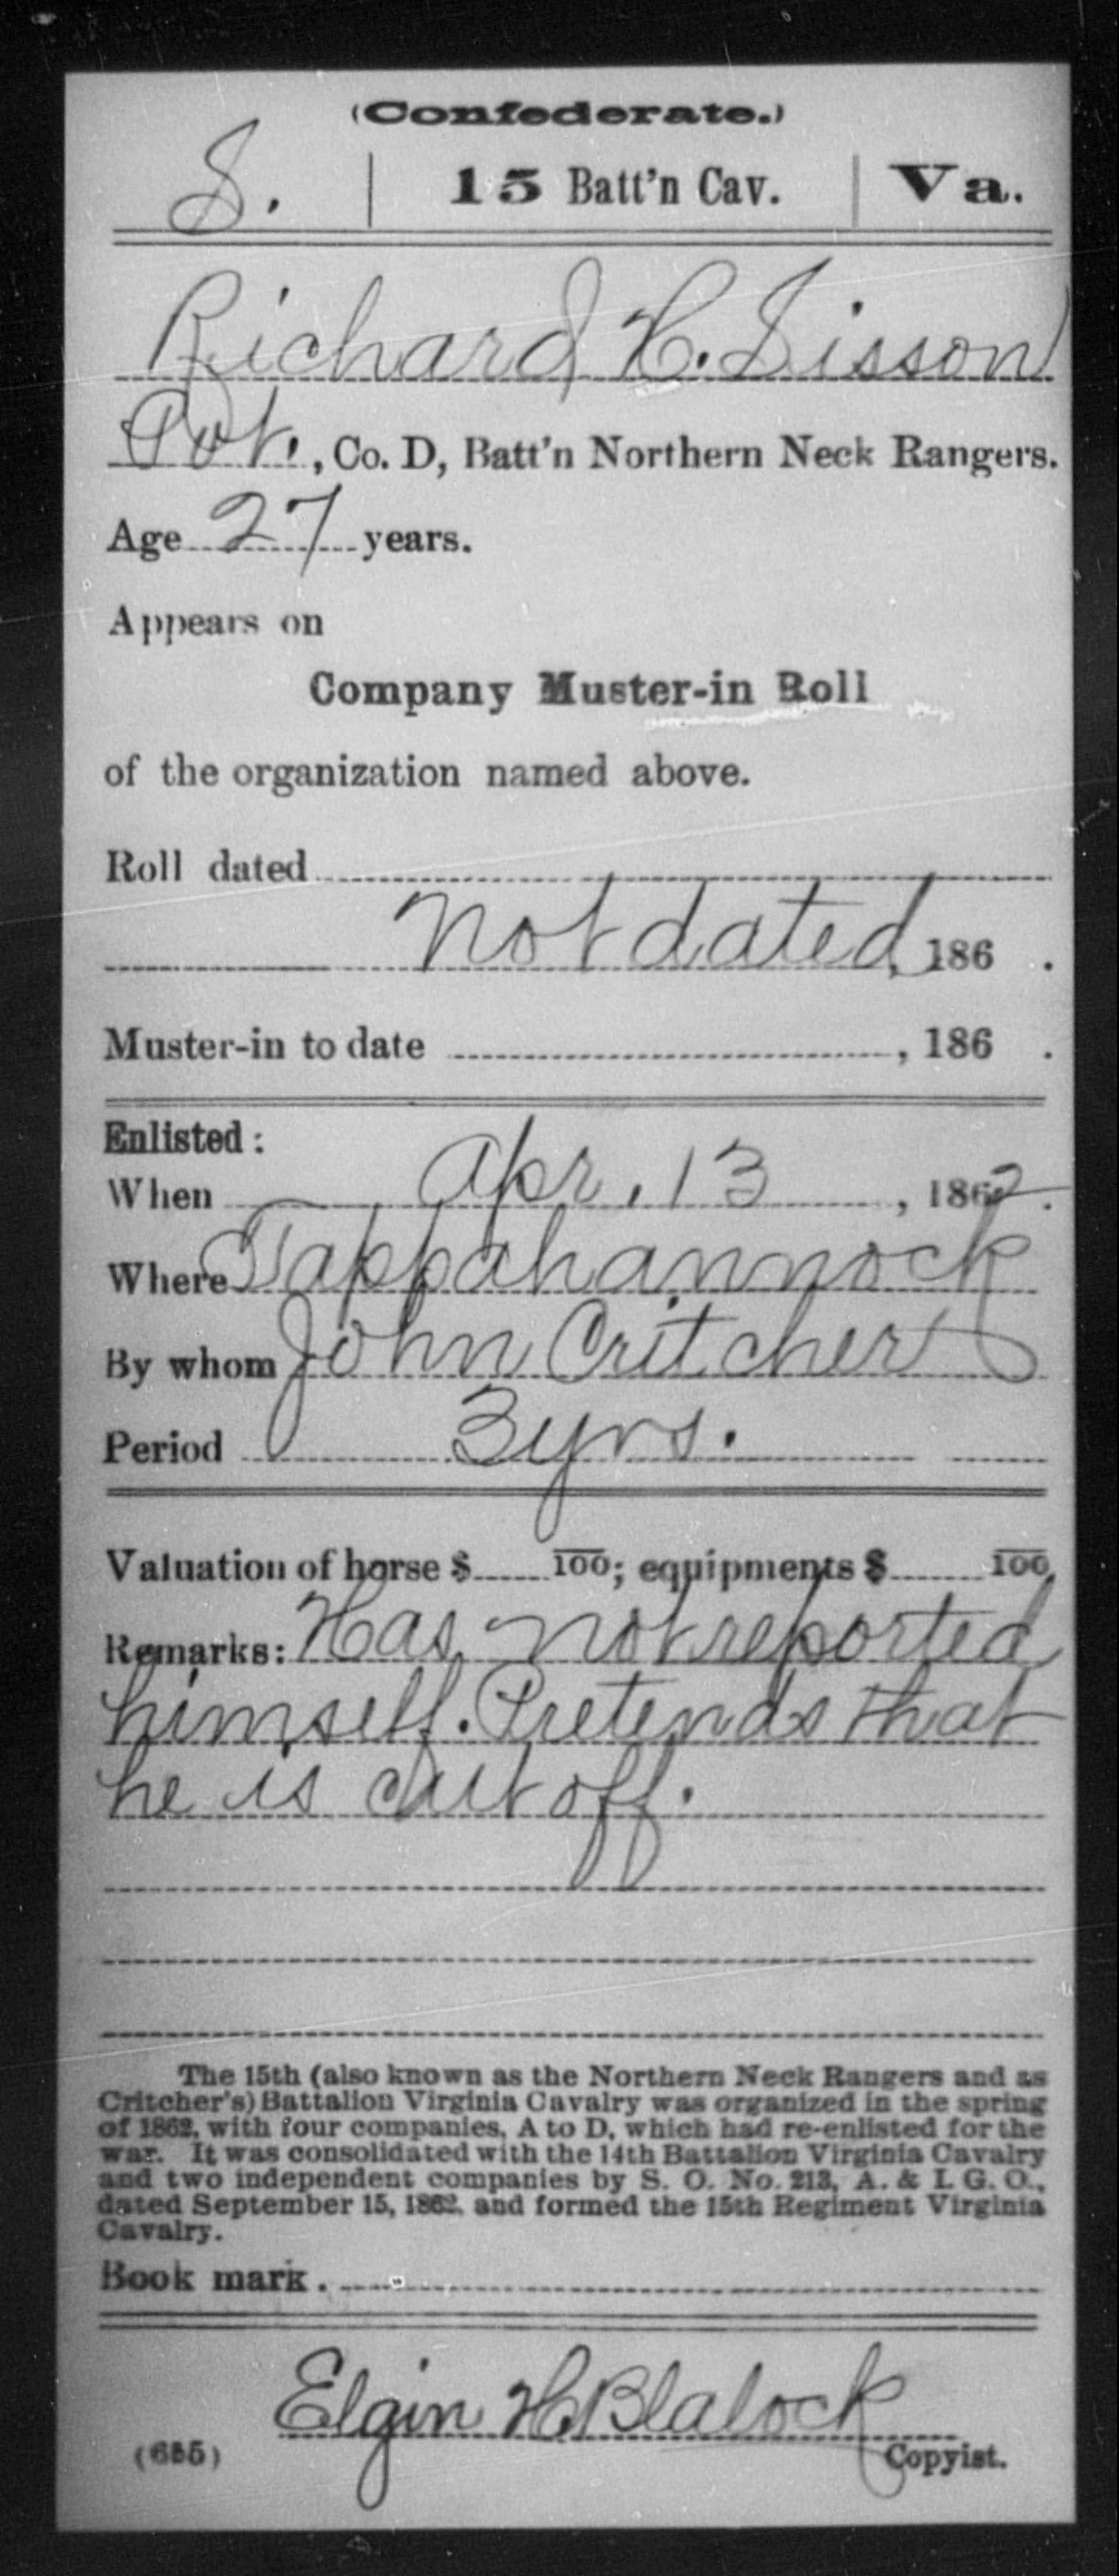 (Confederate.)
S. | 15 Batt'n Cav. | Va.
Richard H. Sisson
Pvt., Co. D, Batt'n Northern Neck Rangers.
Age 27 years.
Appears on
Company Muster-in Roll
of the organization named above.
Roll dated
not dated, 186 .
Muster-in to date , 186 .
Enlisted:
When Apr. 13, 1862.
Where Tappahannock
By whom John Critcher
Period 3 yrs.
Valuation of horse $ 100; equipments $ 100
Remarks: Has not reported
himself. Pretends that
he is cut off.
The 15th (also known as the Northern Neck Rangers and as
Critcher's) Battalion Virginia Cavalry was organized in the spring
of 1862, with four companies, A to D, which had re-enlisted for the
war. It was consolidated with the 14th Battalion Virginia Cavalry
and two independent companies by S. O. No. 213, A. & I. G. O.,
dated September 15, 1862, and formed the 15th Regiment Virginia
Cavalry.
Book mark.
Elgin H. Blalock
(635) Copyist.